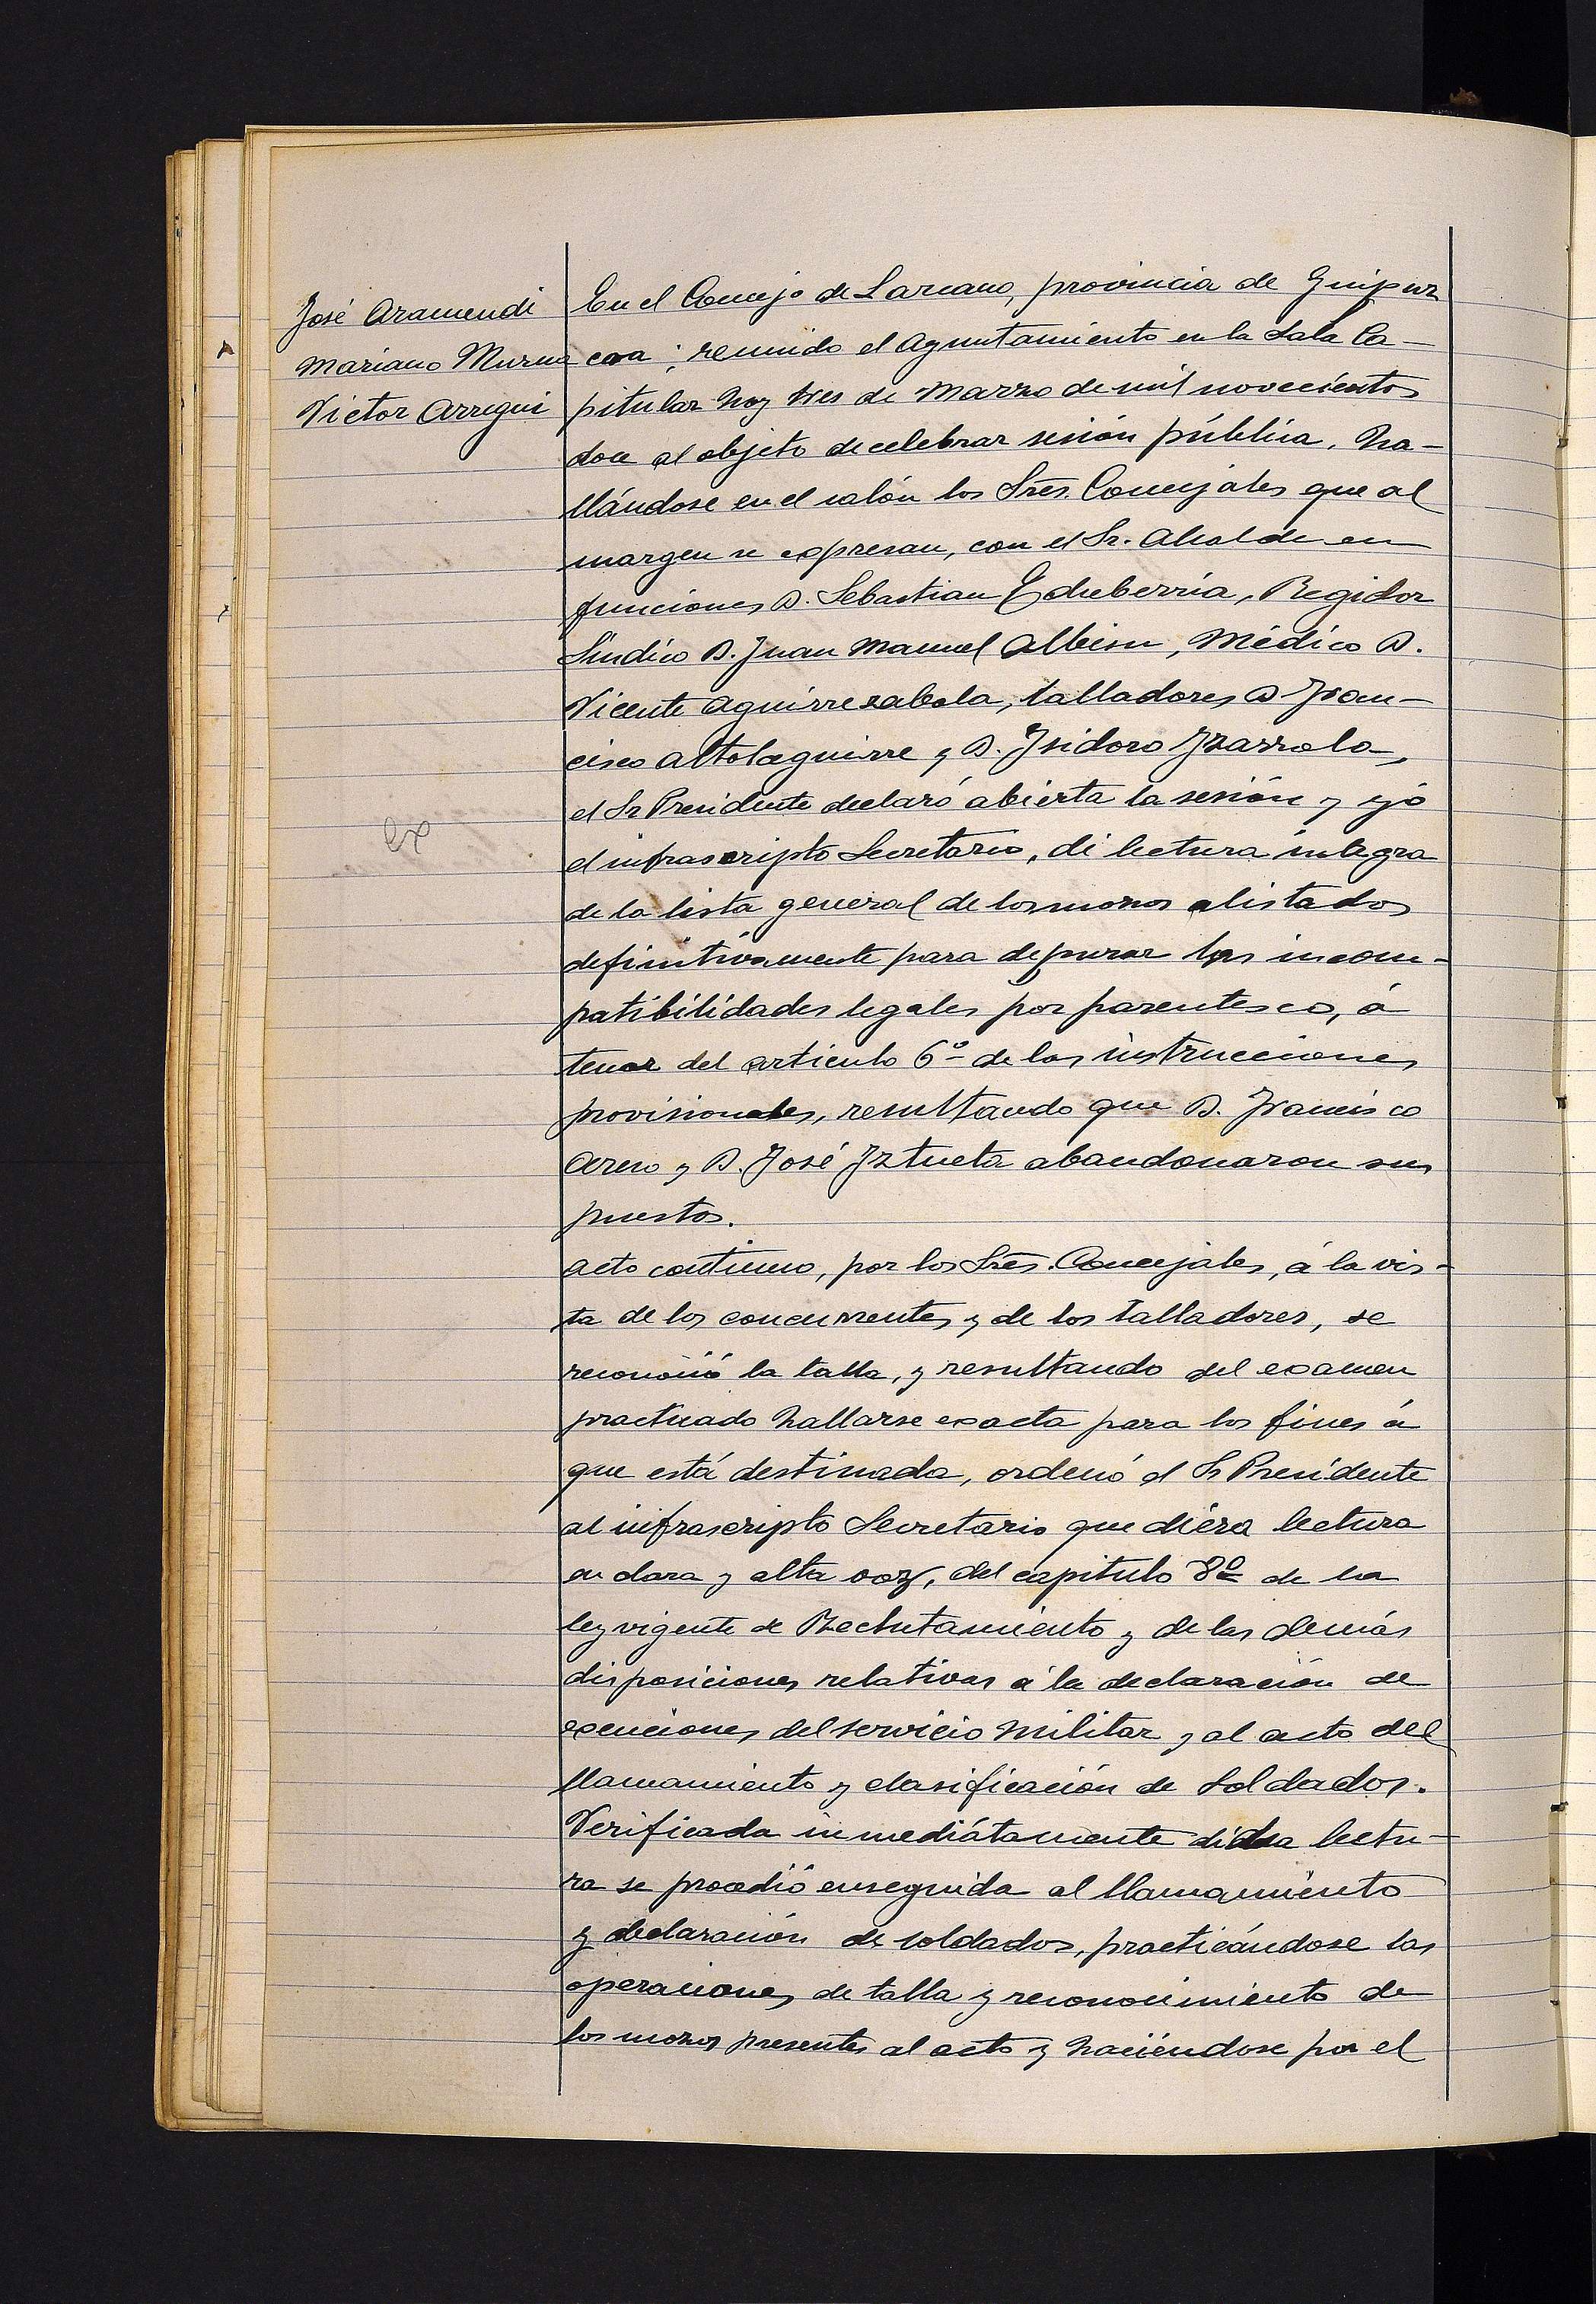 José Aramendi
Mariano Murua
Victor Arregui
En el Concejo de Lazcano, provincia de Guipuz
coa; reunido el Ayuntamiento en la Sala Ca-
pitular hoy tres de Marzo de mil novecientos
doce al objeto de celebrar sesión pública, ha-
llándose en el salón los Sres. Concejales que al
margen se expresan, con el Sr. Alcalde en
funciones D. Sebastian Echeberria, Regidor
Síndico D. Juan Manuel Albisu, Médico D.
Vicente Aguirrezabala, talladores D Fran-
cisco Altolaguirre y D. Isidoro Izarrola,
el Sr Presidente declaró abierta la sesión y yó
el infrascripto Secretario, di lectura íntegra
de la lista general de los mozos alistados
definitivamente para depurar las incom-
patibilidades legales por parentesco, á
tenor del articulo 6º de las instrucciones
provisionales, resultando que D. Francisco
Areso y D. José Iztueta abandonaron sus
puestos.
Acto continuo, por los Sres. Concejales, á la vis-
ta de los concurrentes y de los talladores, se
reconoció la talla, y resultando del examen
practicado hallarse exacta para los fines á
que está destinada, ordenó el Sr Presidente
al infrascripto Secretario que diera lectura
en clara y alta voz, del capitulo 8º de la
ley vigente de Reclutamiento y de las demás
disposiciones relativas á la declaración de
exenciones del servicio militar y al acto del
llamamiento y clasificación de soldados.
Verificada inmediátamente dicha lectu-
ra se procedió enseguida al llamamiento
y declaración de soldados, practicándose las
operaciones de talla y reconocimiento de
los mozos presentes al acto y haciéndose por el